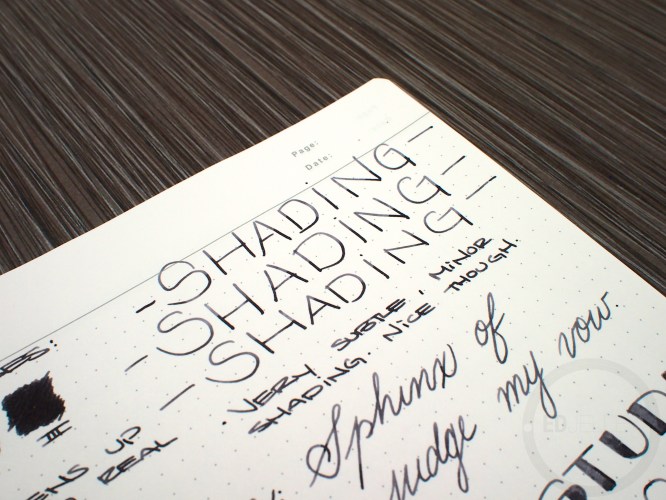 Page:
Date:
- SHADING -
- SHADING -
- SHADING -
. VERY SUBTLE, MINOR
SHADING. NICE THOUGH.
III
UP
REAL
Sphinx of
judge my vow.